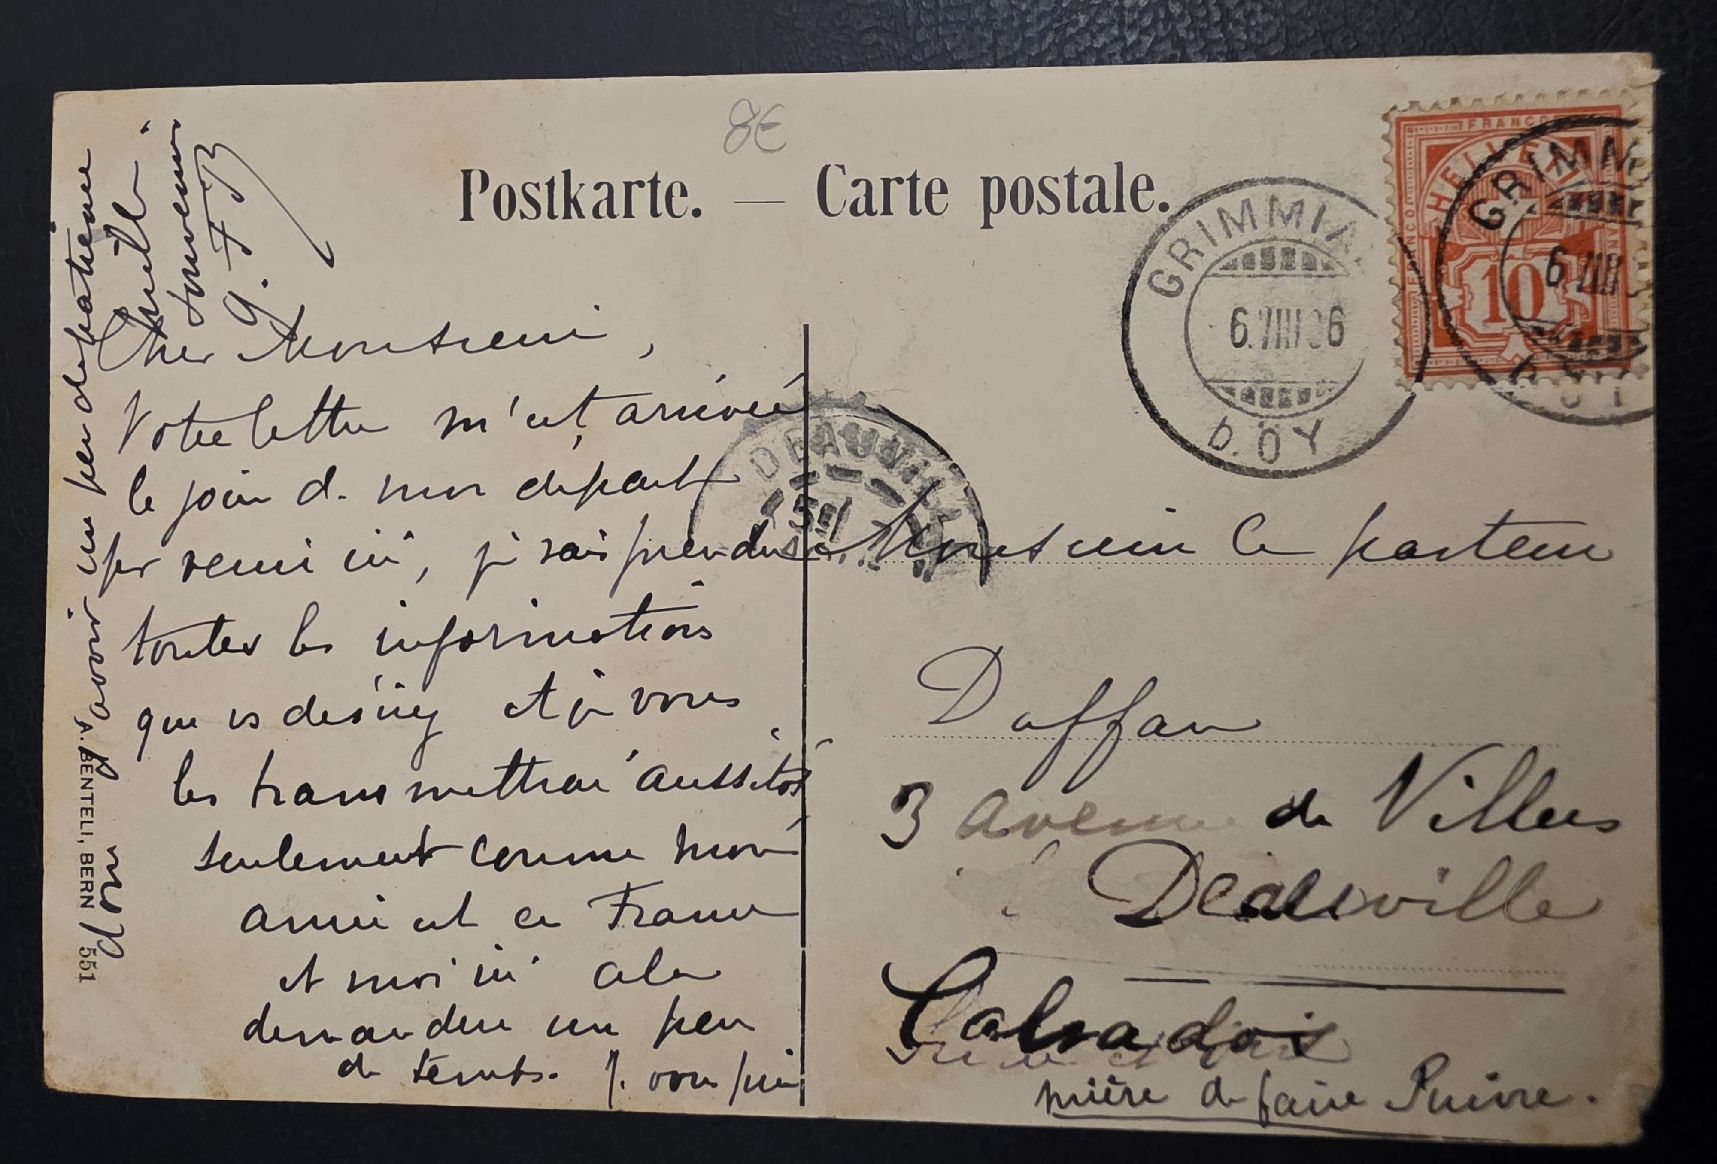 8€
Postkarte. — Carte postale.
FRANCO
HELVETIA
10
GRIMMIA
6.VIII 06
D.ÖY
GRIMM
6 VIII
DEAUVILLE
Cher Monsieur,
Votre lettre m'est arrivée
le jour de mon départ
pr venir ici, je vais prendre
toutes les informations
que vs désirez et je vous
les transmettrai aussitôt
seulement comme mon
amie est en France
et moi ici cela
demandera un peu
de temps. Je vous prie
donc d'avoir un peu de patience
Meill.
souvenirs
A. BENTELI, BERN 551
Monsieur le pasteur
3 avenue de Villers
Deauville
Calvados
Prière de faire suivre.